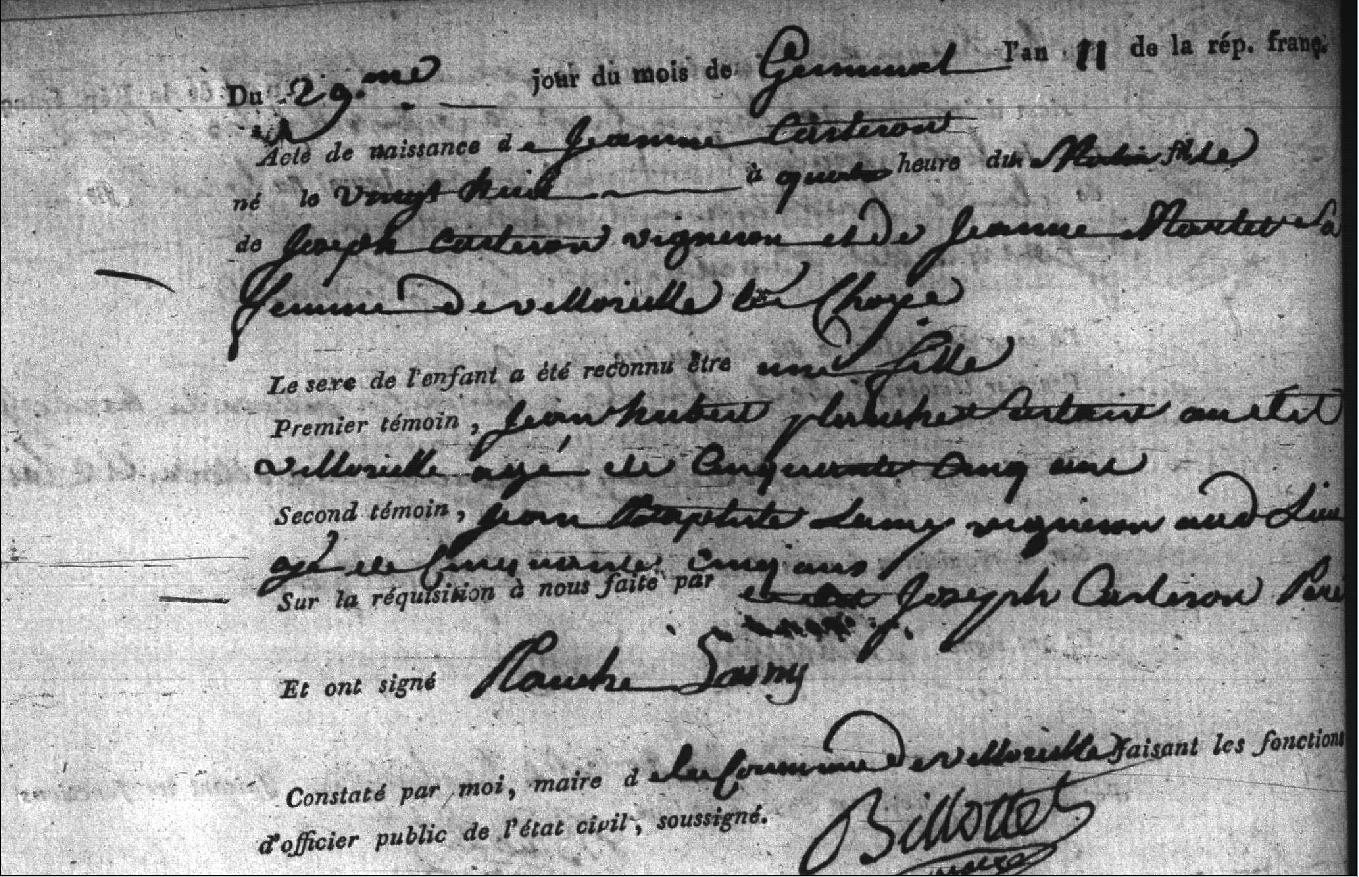 Du 29.me jour du mois de Germinal l'an 11 de la rép. franç.
Acte de naissance de Jeanne Casteron
né le vingt huit à quatre heure du Matin fille
de Joseph Casteron vigneron et de Jeanne sa
femme de
Le sexe de l'enfant a été reconnu être une fille
Premier témoin, jean hubert audit
agé de Cinquante Cinq ans
Second témoin, jean Baptiste Lamy vigneron aud Lieu
agé de Cinquante Cinq ans
Sur la réquisition à nous faite par Joseph Casteron Pere
Et ont signé Planche Lamy
Constaté par moi, maire de la Commune de faisant les fonctions
d'officier public de l'état civil, soussigné. Billottet
maire